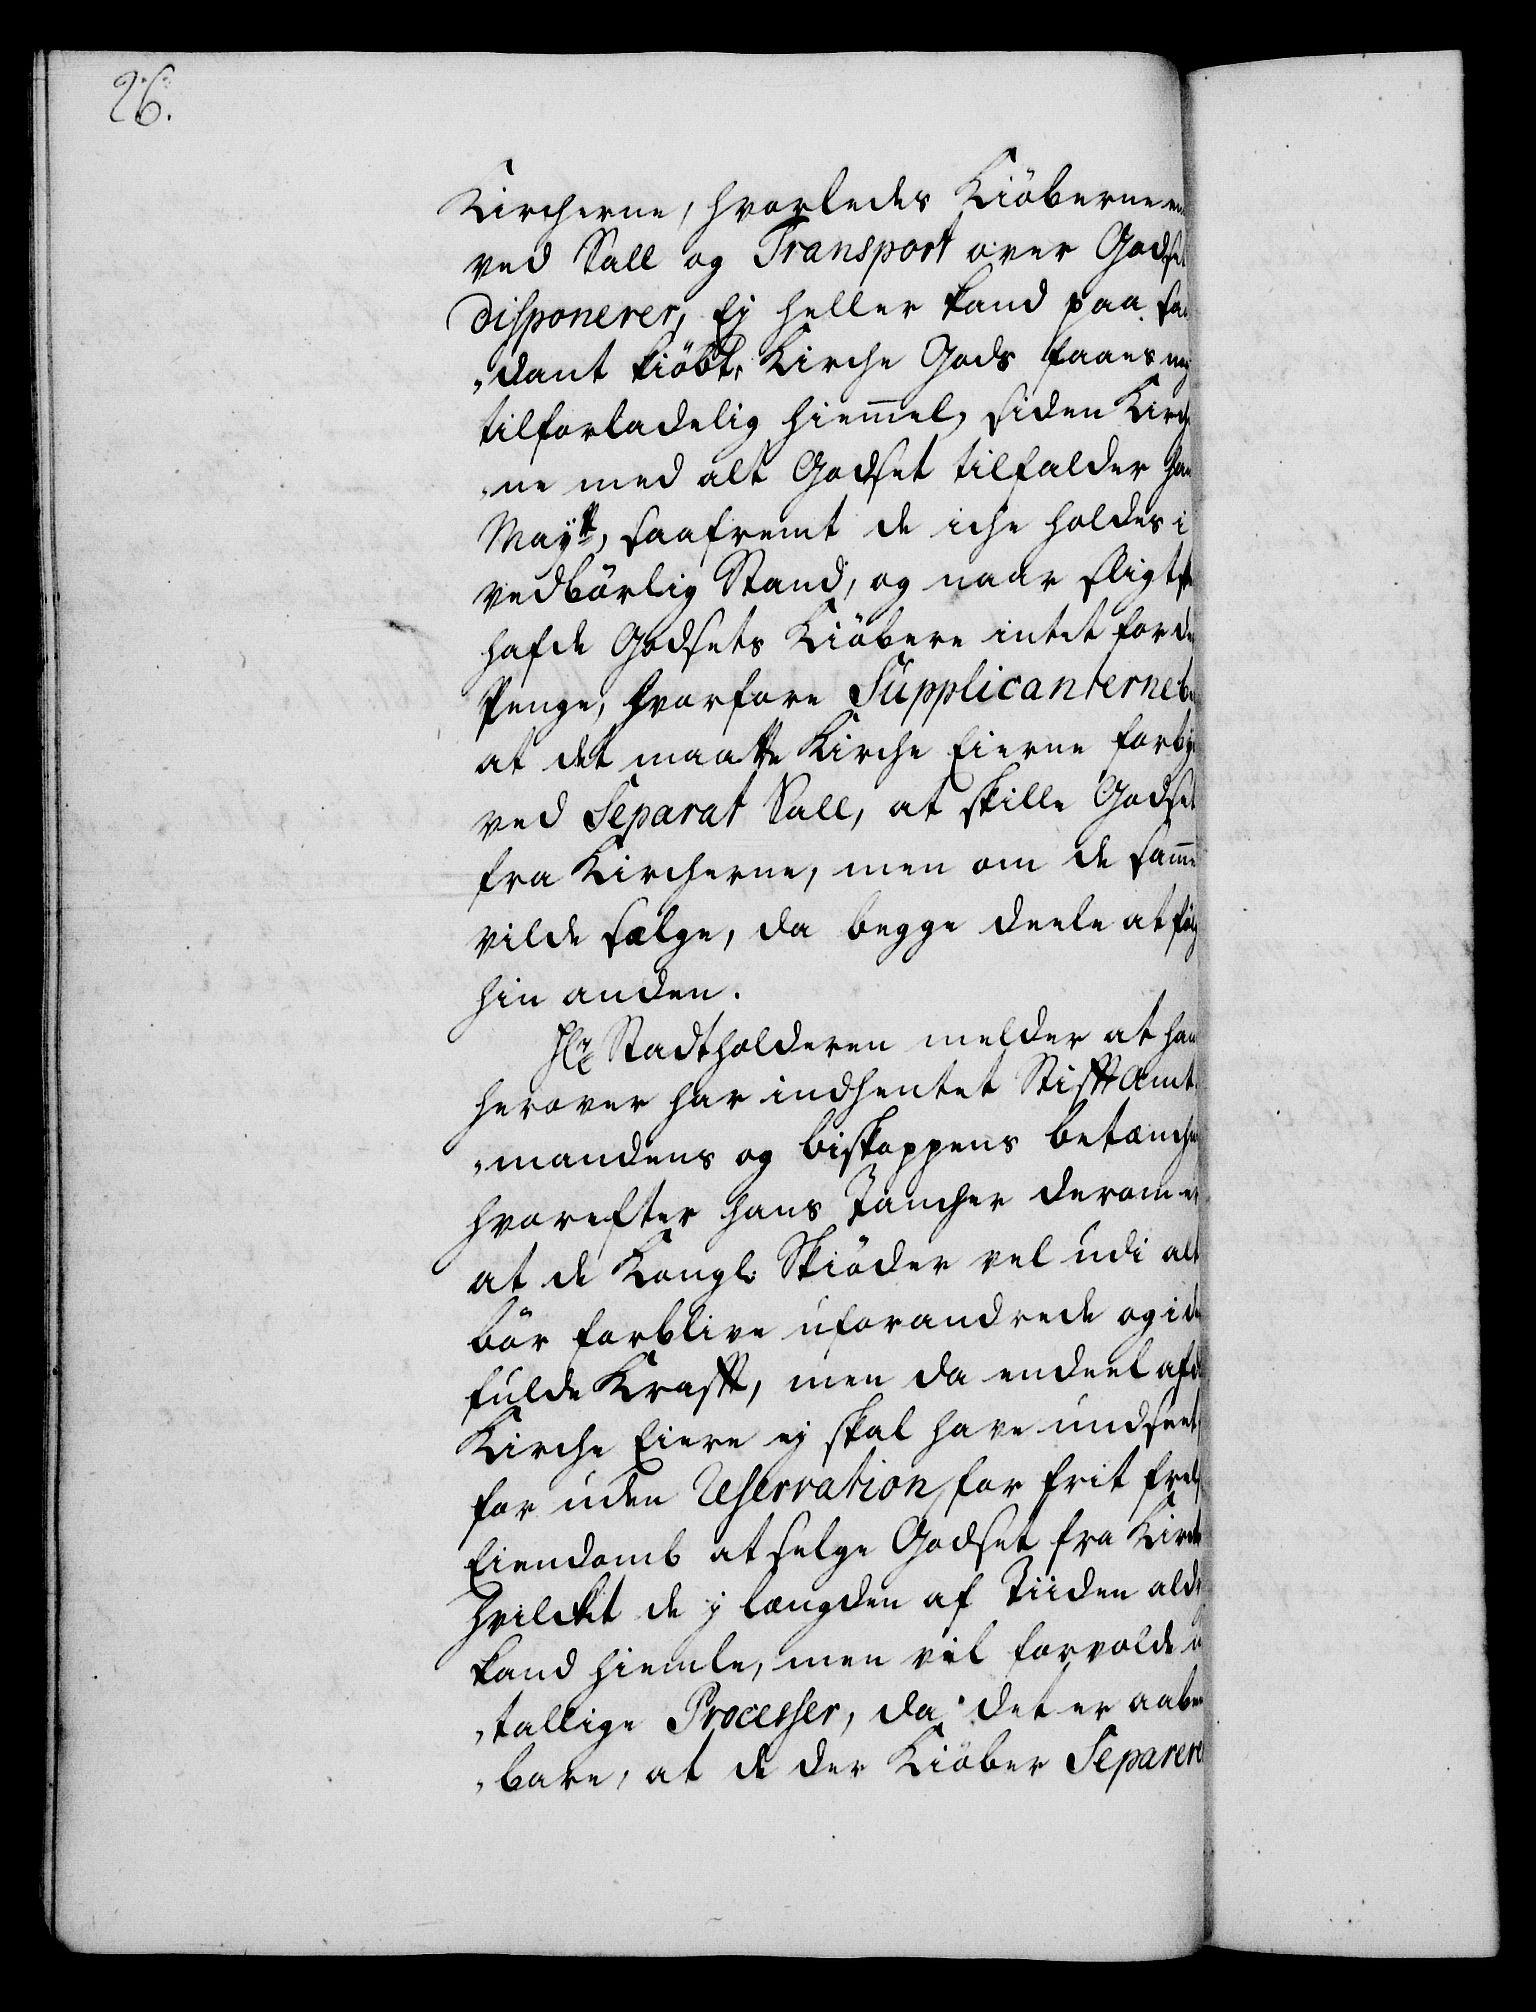 26.
Kircherne, hvorledes Kiöberne
ved Sall og Transport over Godset
disponerer, Ej heller kand paa saa
„dant kiöbt Kirche Gods faaes
tilforladelig Hiemmel, siden Kirch
„ne med alt Godset tilfalder Han
Mayᵗᵗ, saafremt de iche holdes i
vedbörlig Stand, og naar sligt
hafde Godsets Kiöbere intet for de
Penge, hvorfore Supplicanterne be
at det maatte Kirche Eierne forby
ved Separat Sall, at skille Godset
fra Kircherne, men om de samme
vilde sælge, da begge deele at föl
hin anden.
Hr Stadtholderen melder at han
herover har indhentet Stifft Amt
„mandens og biskoppens betænch
hvorefter hans Tancher derom er
at de Kongl. Skiöder vel udi alt
bör forblive uforandrede og i de
fulde Krafft, men da endeel af
Kirche Eiere ej skal have undseet
for uden Reservation for frit frels
Eiendomb at selge Godset fra Kirch
hvilcket de j længden af Tiiden aldr
kand hiemle, men vil forvolde u
„tallige Processer, da det er aaben
„bare, at de der Kiöber Separere